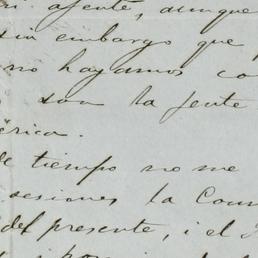 ajente, aunque
sin embargo que
no hayamos co
son la jente
érica.
de tiempo no me
sesiones la Com
del presente, i el